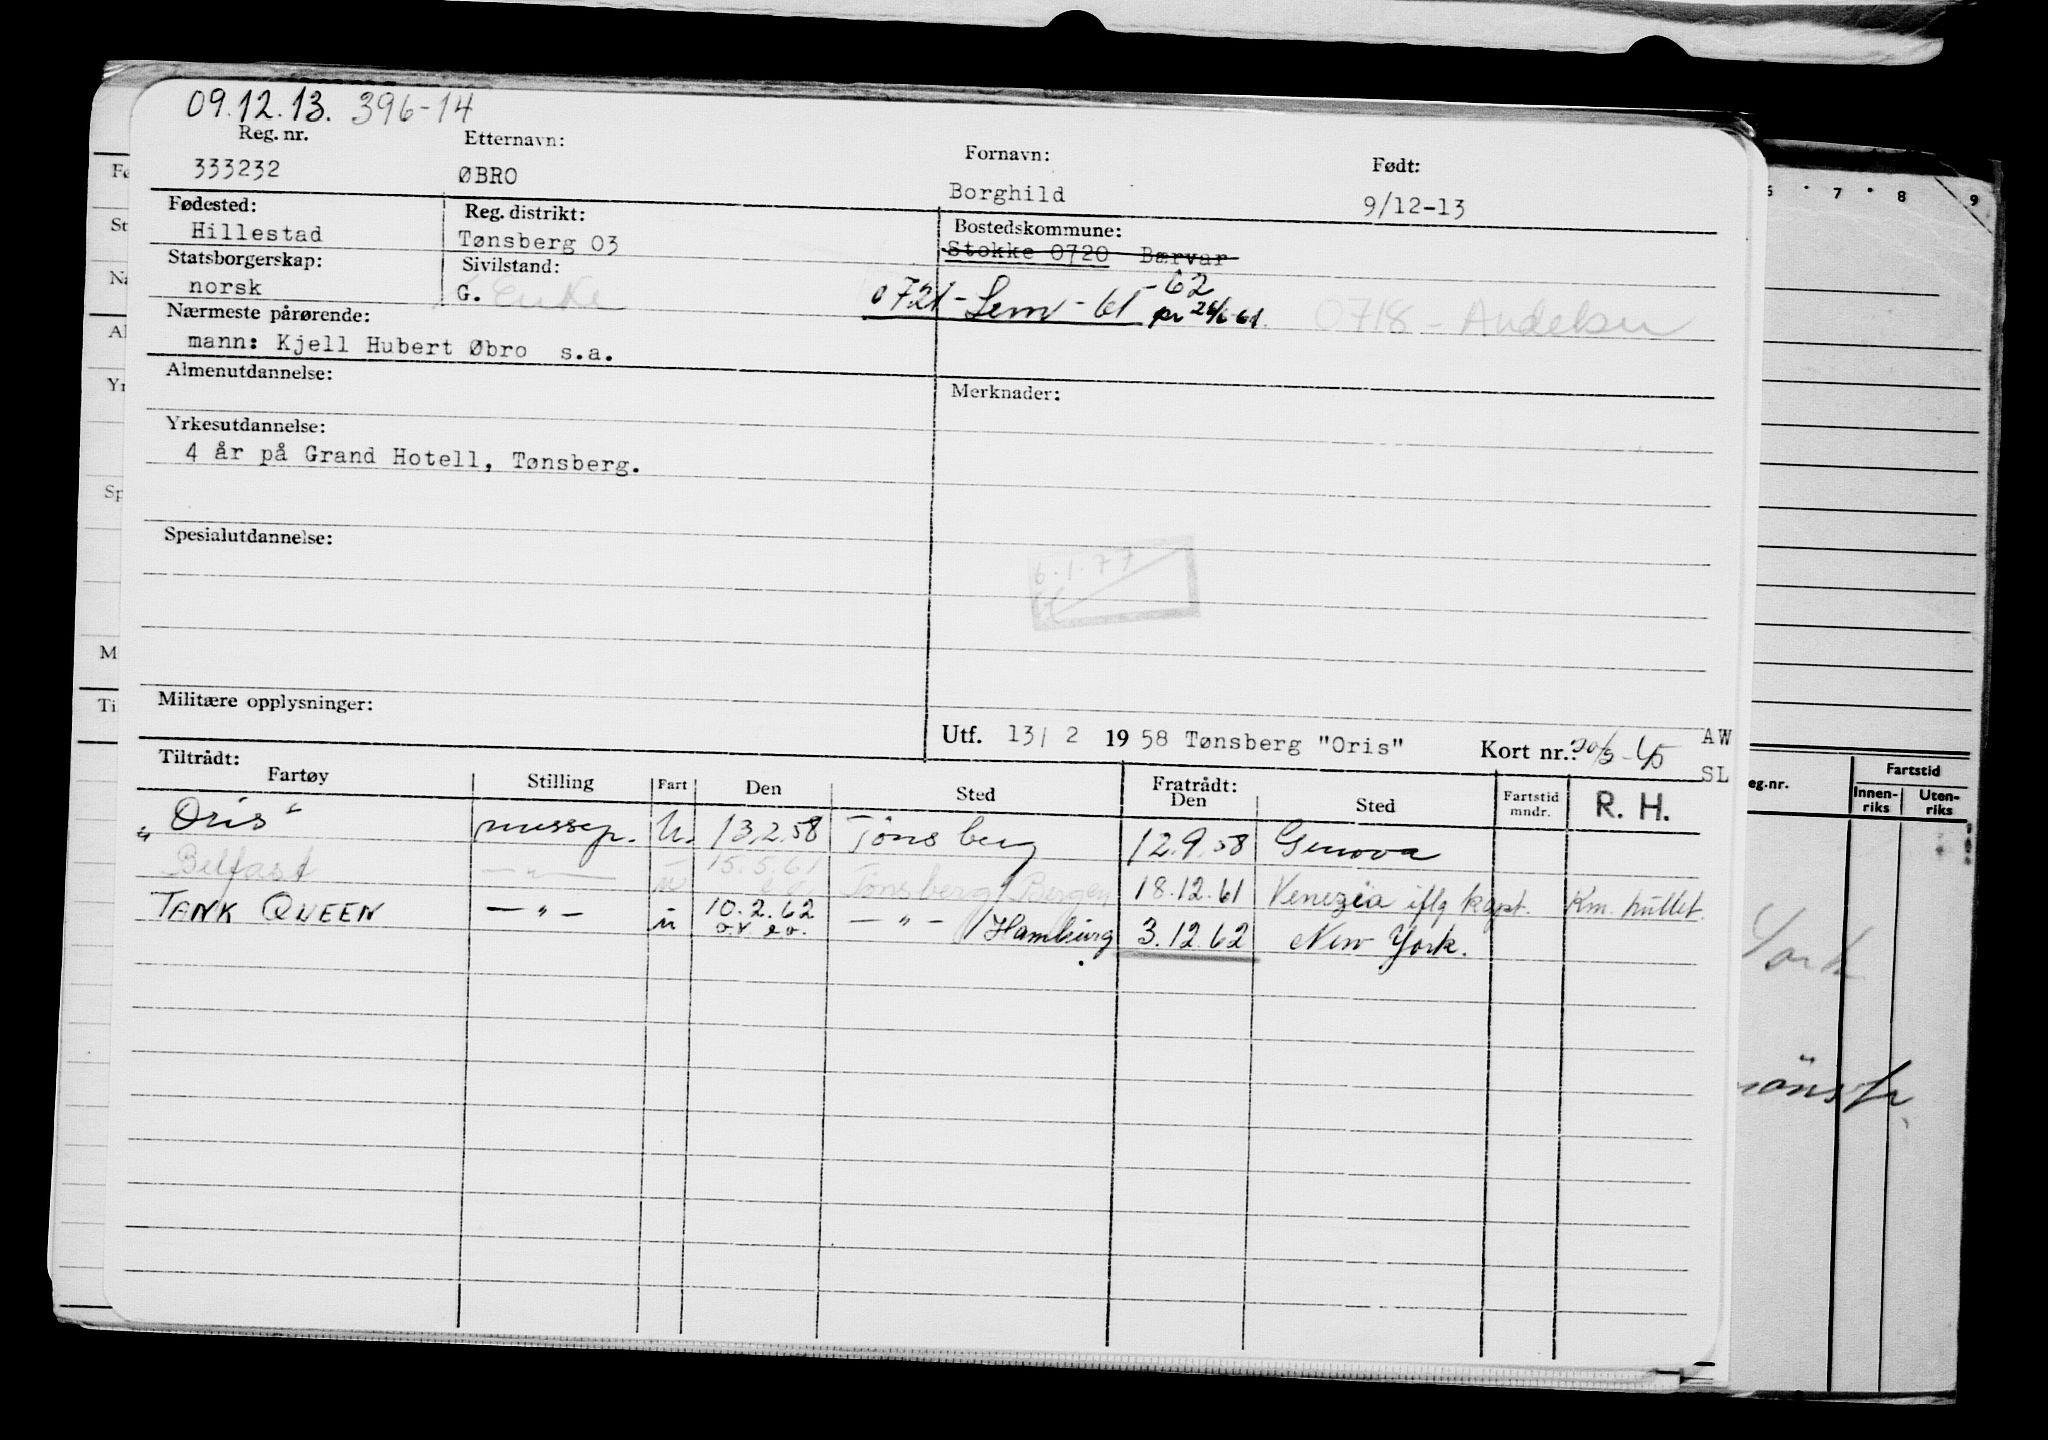 09.12.13. 396-14
Reg. nr. Etternavn: Fornavn: Født:
333232 ØBRO Borghild 9/12-13
Fødested: Reg. distrikt: Bostedskommune:
Hillestad Tønsberg 03 Stokke 0720 Bærvar
Statsborgerskap: Sivilstand:
norsk G. Enke 0721 - Sem - 61 - 62 pr 26/6-61. 0718 -
Nærmeste pårørende:
mann: Kjell Hubert Øbro s.a.
Almenutdannelse: Merknader:
Yrkesutdannelse:
4 år på Grand Hotell, Tønsberg.
Spesialutdannelse:
6.1.77
Militære opplysninger:
Utf. 13/ 2 19 58 Tønsberg "Oris" Kort nr.: AW
SL
Tiltrådt: Fratrådt:
Fartøy Stilling Fart Den Sted Den Sted Fartstid mndr. R. H.
"Oris" messep. U. 13.2.58 Tönsberg 12.9.58 Genova
Belfast — " — u 15.5.61 Tönsberg/Bergen 18.12.61 Venezia iflg kapt. Km. hullet.
TANK QUEEN — " — u 10.2.62 — " — /Hamburg 3.12.62 New York.
6 7 8 9
eg.nr. Fartstid
Innen-riks Uten-riks
York
Fø
St
Na
Al
Yr
Sp
M
Ti